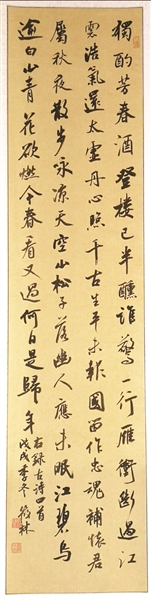 獨酌芳春酒登樓已半醺誰驚一行雁衝斷過江
雲浩氣還太虛丹心照千古生平未報國留作忠魂補懷君
屬秋夜散步詠涼天空山松子落幽人應未眠江碧鳥
逾白山青花欲燃今春看又過何日是歸年
右錄古詩四首
戊戌季冬 林